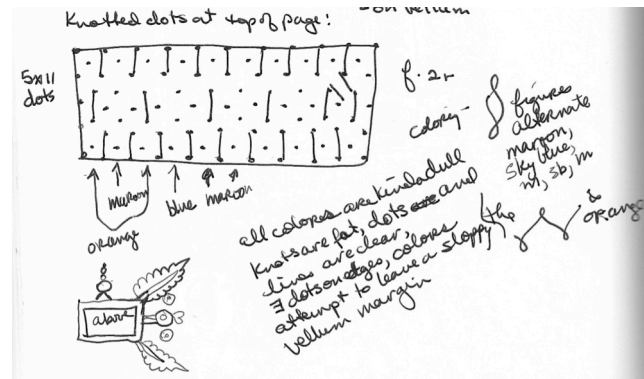 - on vellum
Knotted dots at top of page:
5x11
dots
f. 2r
coloring -
figures
alternate
maroon,
sky blue,
m, sb, m
maroon
blue maroon
orange
all colores are kinda dull
knots are fat, dots are and
lines are clear,
∃ dots on edges, colors
attempt to leave a sloppy
vellum margin
(the
is
orange
above